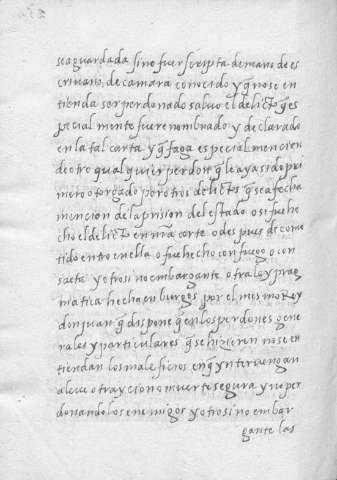 sea guardada sino fuer screpta de mano de es
crivano, de camara conocido y q̃ no se en
tienda ser perdonado salvo el delicto q̃ es
pecial mente fuere nombrado y declarado
en la tal carta y q̃ faga especial mencion
de otro qual quier perdon q̃ le aya sido pri
mero otorgado por otros delictos q̃ sea fecha
mencion de la prision del estado o si fue he
cho el delicto en nr̃a corte o despues de come
tido entro en ella o fue hecho con fuego o con
saeta y otrosi no embargante otra ley prag
matica hecha en burgos por el mismo Rey
don juan q̃ dispone q̃ en los perdones gene
rales y particulares q̃ se hizieren no se en
tiendan los maleficios en q̃ ynterbengan
aleve o traycion o muerte segura y no per
donando los enemigos y otrosi no embar
gante las